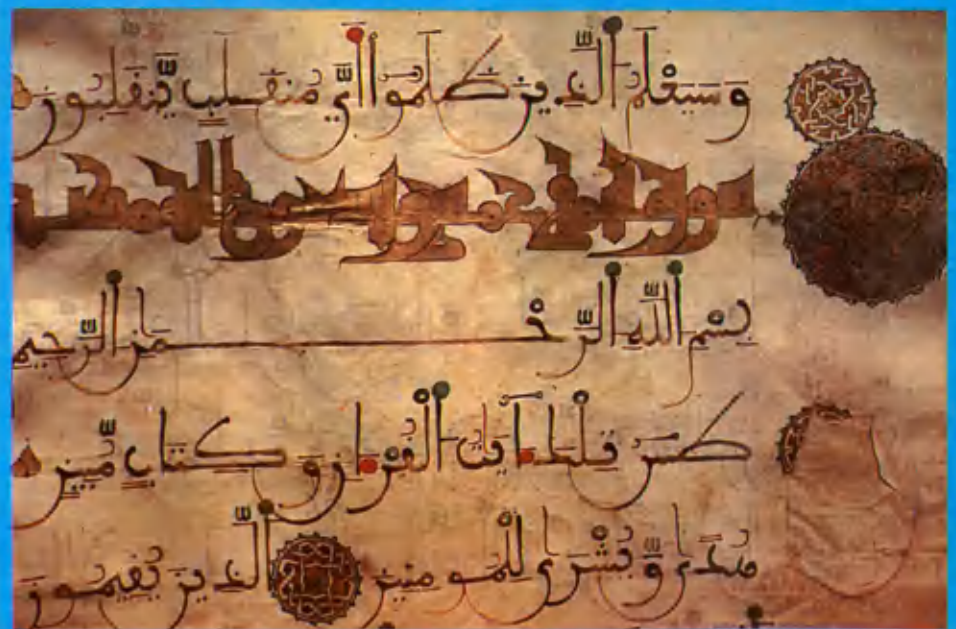 وَسَيَعْلَمُ الَّذِينَ ظَلَمُوا أَيَّ مُنقَلَبٍ يَّنقَلِبُونَ
سورة
بِسْمِ اللَّهِ الرَّحْمَنِ الرَّحِيمِ
طسَ تِلْكَ ءَايَٰتُ الْقُرْءَانِ وَكِتَابٍ مُّبِينٍ
هُدًى وَّبُشْرَىٰ لِلْمُومِنِينَ الَّذِينَ يُقِيمُونَ